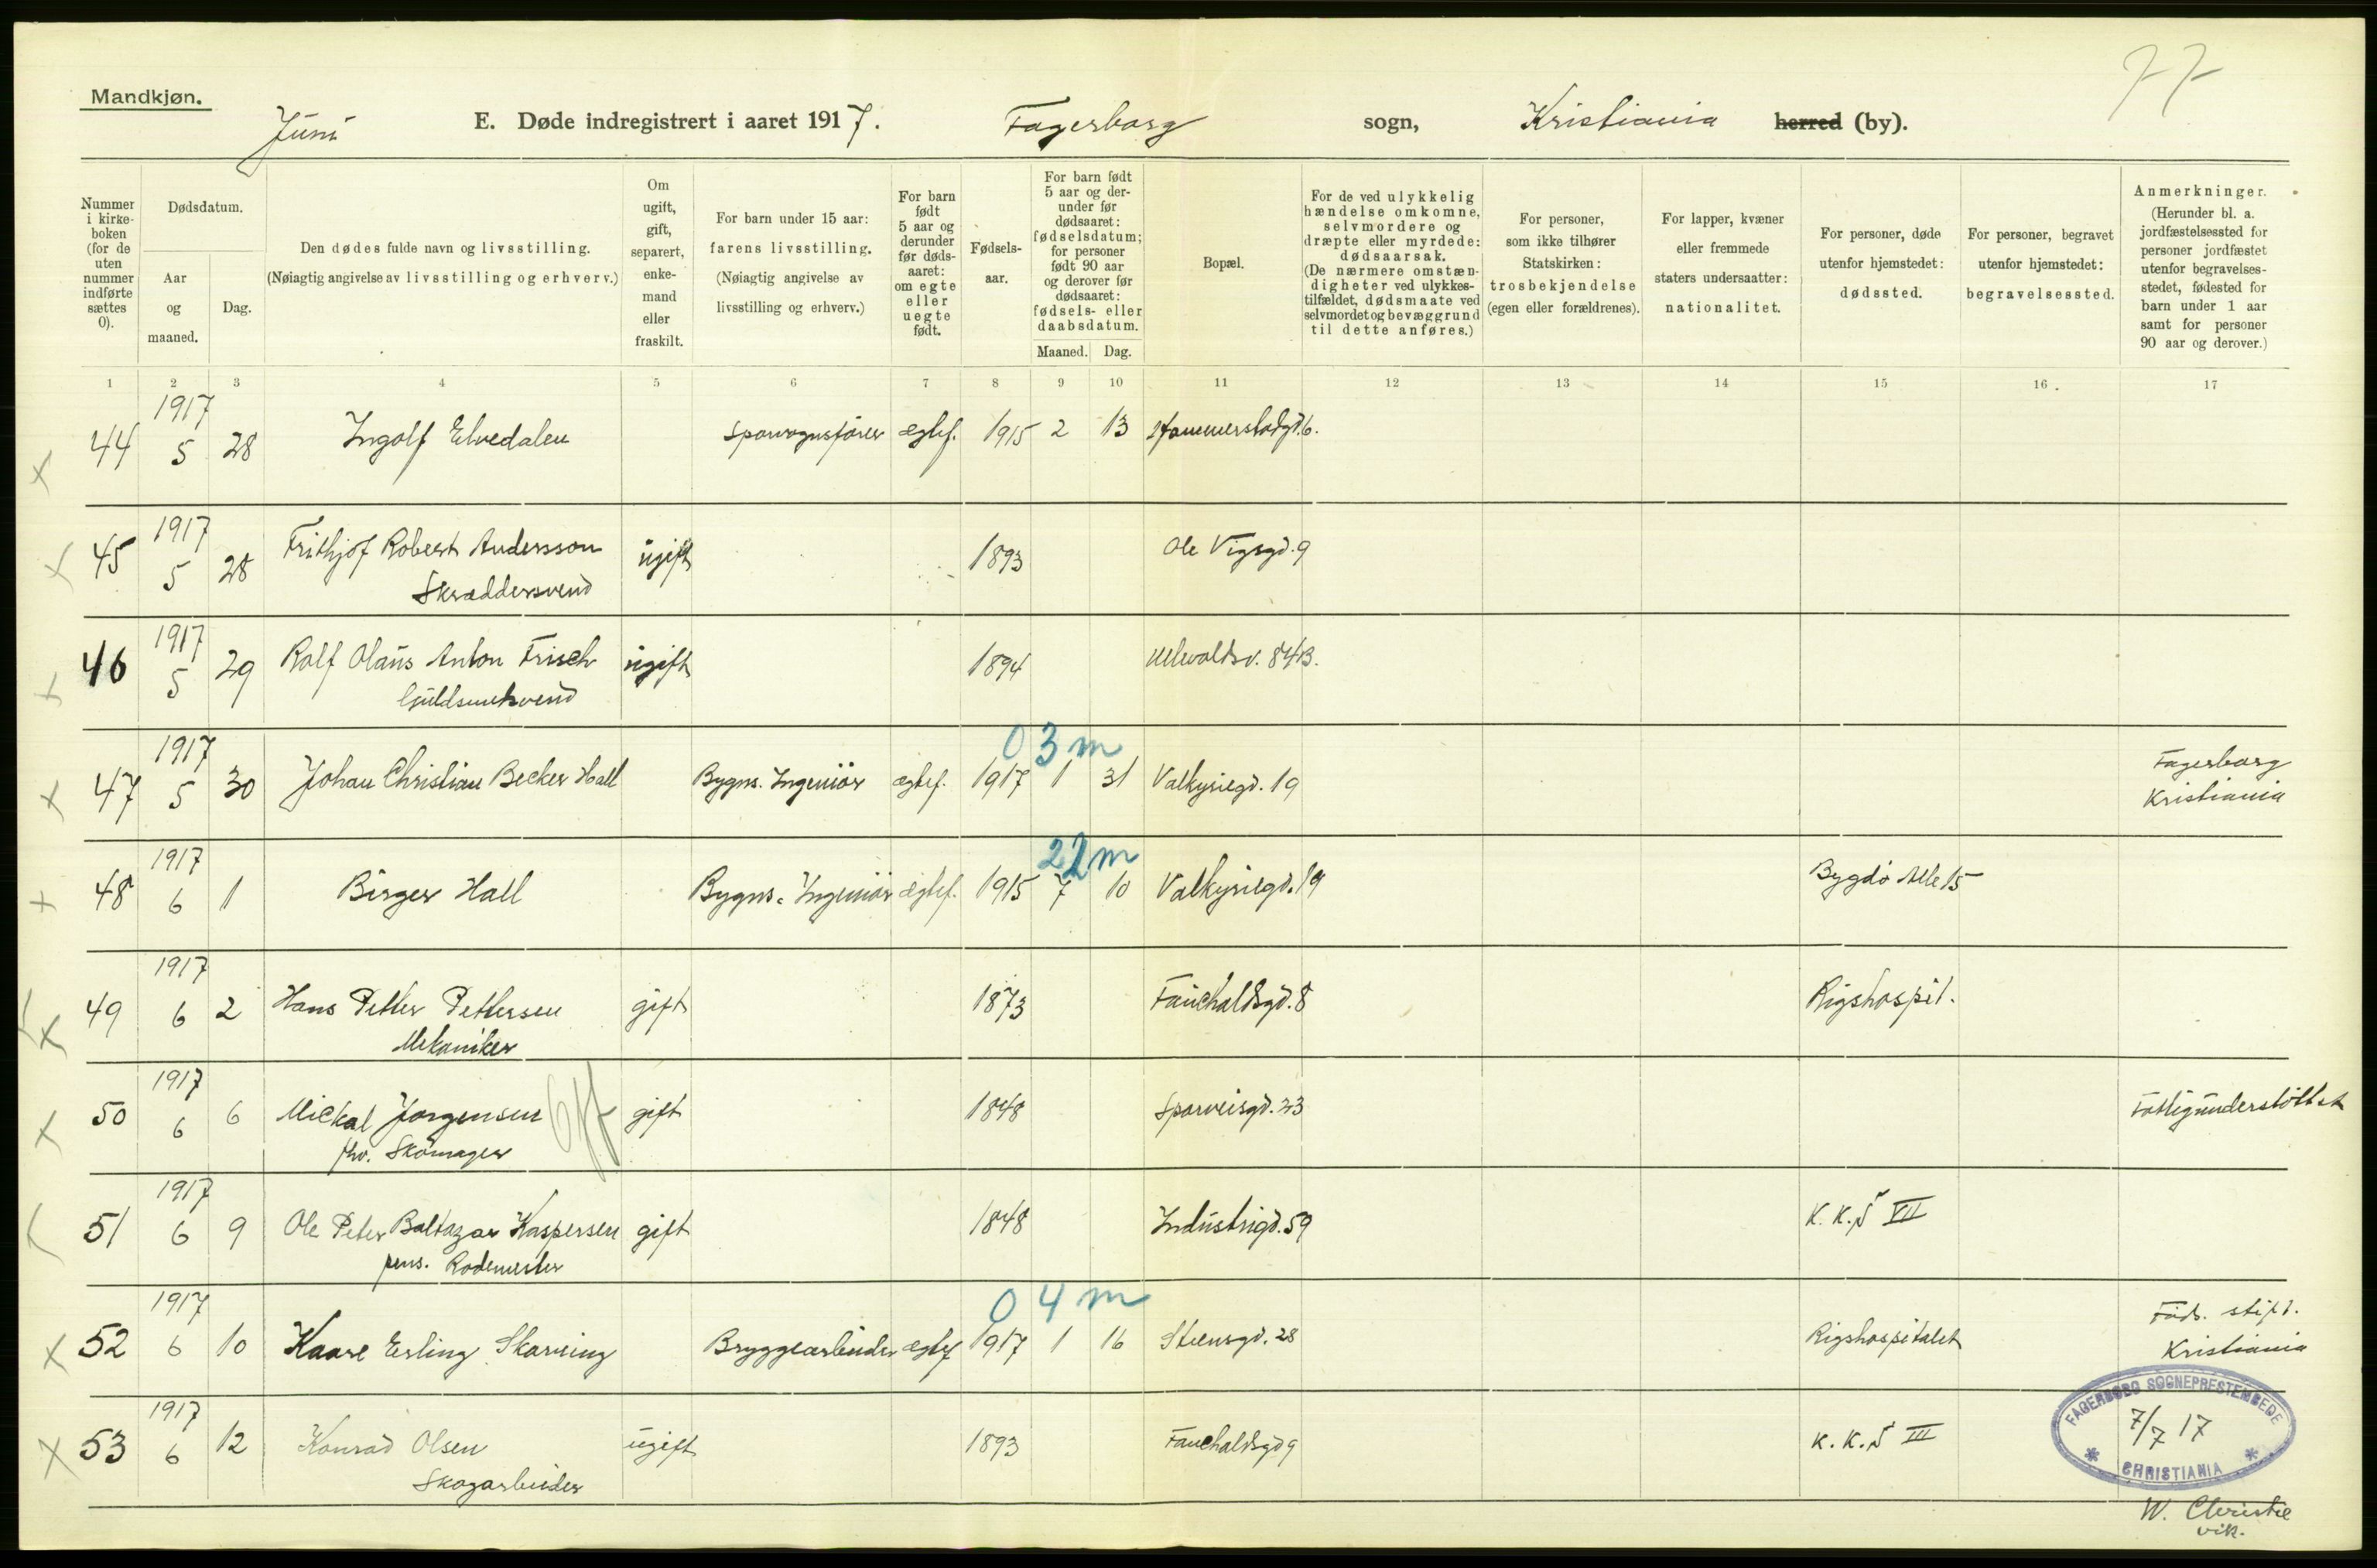 77
Mandkjøn.
Juni E. Døde indregistrert i aaret 1917. Fagerborg sogn, Kristiania herred (by).
Nummer i kirke- boken (for de uten nummer indførte sættes 0).
Dødsdatum.
Aar og maaned.
Dag.
Den dødes fulde navn og livsstilling.
(Nøiagtig angivelse av livsstilling og erhverv.)
Om ugift, gift, separert, enke- mand eller fraskilt.
For barn under 15 aar: farens livsstilling. (Nøiagtig angivelse av livsstilling og erhverv.)
For barn født 5 aar og derunder før døds- aaret: om egte eller uegte født.
Fødsels- aar.
For barn født 5 aar og der- under før dødsaaret: fødselsdatum; for personer født 90 aar og derover før dødsaaret: fødsels- eller daabsdatum.
Maaned. Dag.
Bopæl.
For de ved ulykkelig hændelse omkomne, selvmordere og dræpte eller myrdede: dødsaarsak. (De nærmere omstæn- digheter ved ulykkes- tilfældet, dødsmaate ved selvmordet og bevæggrund til dette anføres.)
For personer, som ikke tilhører Statskirken: trosbekjendelse (egen eller forældrenes).
For lapper, kvæner eller fremmede staters undersaatter: nationalitet.
For personer, døde utenfor hjemstedet: dødssted.
For personer, begravet utenfor hjemstedet: begravelsessted.
Anmerkninger. (Herunder bl. a. jordfæstelsessted for personer jordfæstet utenfor begravelses- stedet, fødested for barn under 1 aar samt for personer 90 aar og derover.)
1 2 3 4 5 6 7 8 9 10 11 12 13 14 15 16 17
1917
44 5 28 Ingolf Elvedalen Sporvognsfører ægtef. 1915 2 13 Hammerstadgd. 6.
1917
45 5 28 Frithjof Robert Andersson ugift 1893 Ole Vigsgd. 9
Skræddersvend
1917
46 5 29 Rolf Olaus Anton Frisch ugift 1894 Ullevoldsv. 84B.
Guldsmedsvend
1917 0 3 m
47 5 30 Johan Christian Becker Hall Bygns. Ingeniör ægtef. 1917 1 31 Valkyriegd. 19 Fagerborg
Kristiania
1917 22 m
48 6 1 Birger Hall Bygns. Ingeniör ægtef. 1915 7 10 Valkyriegd. 19 Bygdö Alle 15
1917
49 6 2 Hans Petter Pettersen gift 1873 Fauchaldsgd. 8 Rigshospit.
Mekaniker
1917
50 6 6 Mickal Jorgensen gift 1848 Sporveisgd. 23 Fattigunderstöttet
fhv. Skomager
1917
51 6 9 Ole Peter Baltazar Kaspersen gift 1848 Industrigd. 59 K. K. S VII
pens. Rodemester
1917 0 4 m
52 6 10 Kaare Erling Skarning Bryggearbeider ægtef 1917 1 16 Steensgd. 28 Rigshospitalet Föds. stift.
Kristiania
1917
53 6 12 Konrad Olsen ugift 1893 Fauchaldsgd 9 K. K. S III
Skogarbeider
FAGERBORG SOGNEPRESTEMBEDE
7/7 17
* CHRISTIANIA *
W. Christie
vik.